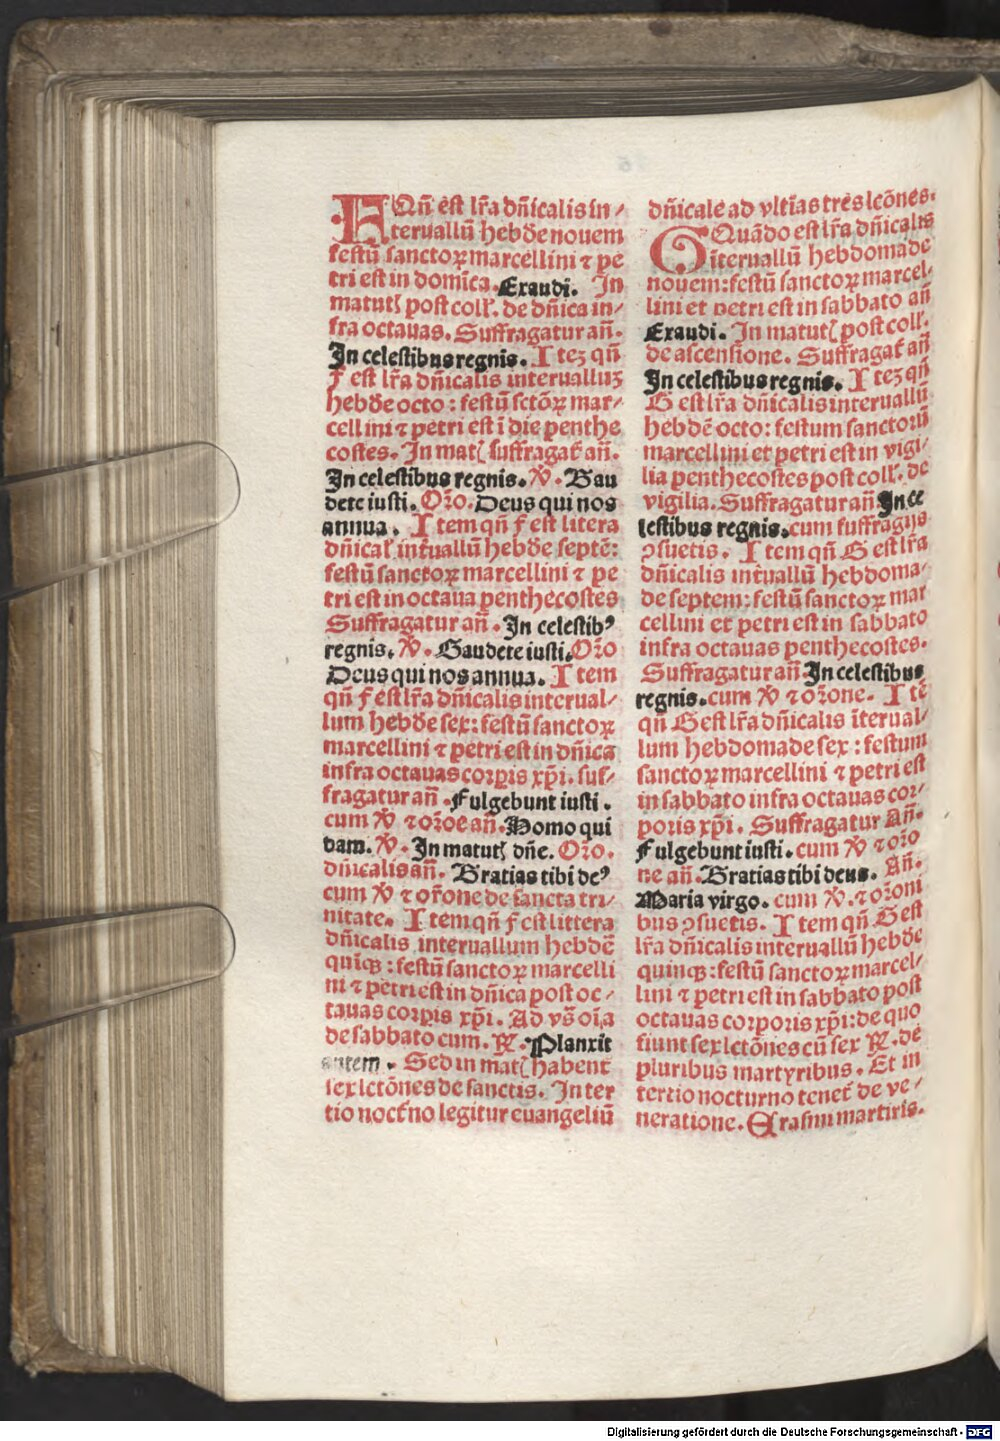 F Qñ est lr̃a dñicalis in⸗
teruallū hebd̄e nouem
festū sanctoꝝ marcellini ⁊ pe
tri est in domīca. Exaudi. In
matutꝭ post coll'. de dñica in⸗
fra octauas. Suffragatur añ.
In celestibus regnis. Iteꝫ qñ
f est lr̃a dñicalis interualluꝫ
hebd̄e octo : festū sctōꝝ mar⸗
cellini ⁊ petri est ī die penthe
costes. In matꝭ suffragat̄ añ.
In celestibus regnis. ℣. Gau
dete iusti. Oꝛ̃o. Deus qui nos
annua. Item qñ f est litera
dñical' int̄uallū hebd̄e septē:
festū sanctoꝝ marcellini ⁊ pe
tri est in octaua penthecostes
Suffragatur añ. In celestibꝰ
regnis. ℣. Gaudete iusti. Oꝛ̃o
Deus qui nos annua. Item
qñ f est lr̃a dñicalis interual⸗
lum hebd̄e sex : festū sanctoꝝ
marcellini ⁊ petri est in dñica
infra octauas corꝑis xp̄i. suf⸗
fragatur añ. Fulgebunt iusti.
cum ℣ ⁊ oꝛ̃oe añ. Homo qui
dam. ℣. In matutꝭ dñe. Oꝛ̃o.
dñicalis añ. Gratias tibi deꝰ
cum ℣ ⁊ or̃one de sancta tri⸗
nitate. Item qñ f est littera
dñicalis interuallum hebdē
quīqꝫ : festū sanctoꝝ marcelli
ni ⁊ petri est in dñica post oc⸗
tauas corꝑis xp̄i. Ad vs̄ oīa
de sabbato cum. ℟. Planxit
autem. Sed in matꝭ habent
sex lctōnes de sanctis. In ter
tio noct̄no legitur euangeliū
dñicale ad vltīas tres lcōnes.
Quādo est lr̃a dñicalis
G īteruallū hebdomade
nouem : festū sanctoꝝ marcel⸗
lini et petri est in sabbato añ
Exaudi. In matutꝭ post coll'.
de ascensione. Suffragat̄ añ
In celestibus regnis. Iteꝫ qñ
G est lr̃a dñicalis interuallū
hebdē octo : festum sanctorū
marcellini et petri est in vigi⸗
lia penthecostes post coll'. de
vigilia. Suffragatur añ In ce
lestibus regnis. cum suffragijs
ꝯsuetis. Item qñ G est lr̃a
dñicalis int̄uallū hebdoma⸗
de septem : festū sanctoꝝ mar
cellini et petri est in sabbato
infra octauas penthecostes.
Suffragatur añ. In celestibus
regnis. cum ℣ ⁊ oꝛ̃one. Itē
qñ G est lr̃a dñicalis īterual⸗
lum hebdomade sex : festum
sanctoꝝ marcellini ⁊ petri est
in sabbato infra octauas cor⸗
poris xp̄i. Suffragatur Añ.
Fulgebunt iusti. cum ℣ ⁊ oꝛ̃o
ne añ. Gratias tibi deus. Añ.
Maria virgo. cum ℣. ⁊ oꝛ̃oni
bus ꝯsuetis. Item qñ G est
lr̃a dñicalis interuallū hebd̄e
quinqꝫ : festū sanctoꝝ marcel⸗
lini ⁊ petri est in sabbato post
octauas corporis xp̄i : de quo
fiunt sex lctōnes cū sex ℟. de
pluribus martyribus. Et in
tertio nocturno tenet̄ de ve⸗
neratione. Erasmi martiris.
Digitalisierung gefördert durch die Deutsche Forschungsgemeinschaft - DFG